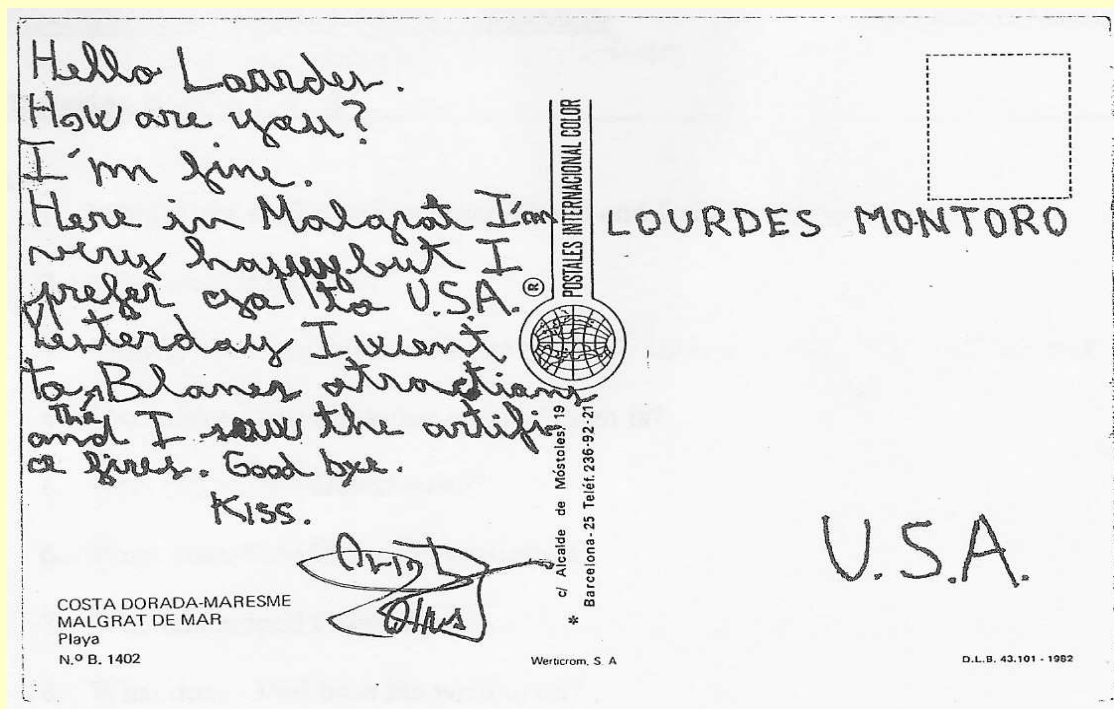 Hello Lourdes.
How are you?
I'm fine.
Here in Malgrat I'm
very happy but I
prefer go to U.S.A.
Yesterday I went
to the Blanes atractions
and I saw the artifi-
ce fires. Good bye.
Kiss.
COSTA DORADA-MARESME
MALGRAT DE MAR
Playa
N.º B. 1402
® POSTALES INTERNACIONAL COLOR
* c/ Alcalde de Móstoles, 19
Barcelona-25 Teléf. 236-92-21
Werticrom, S. A
LOURDES MONTORO
U.S.A.
D.L.B. 43.101 - 1982